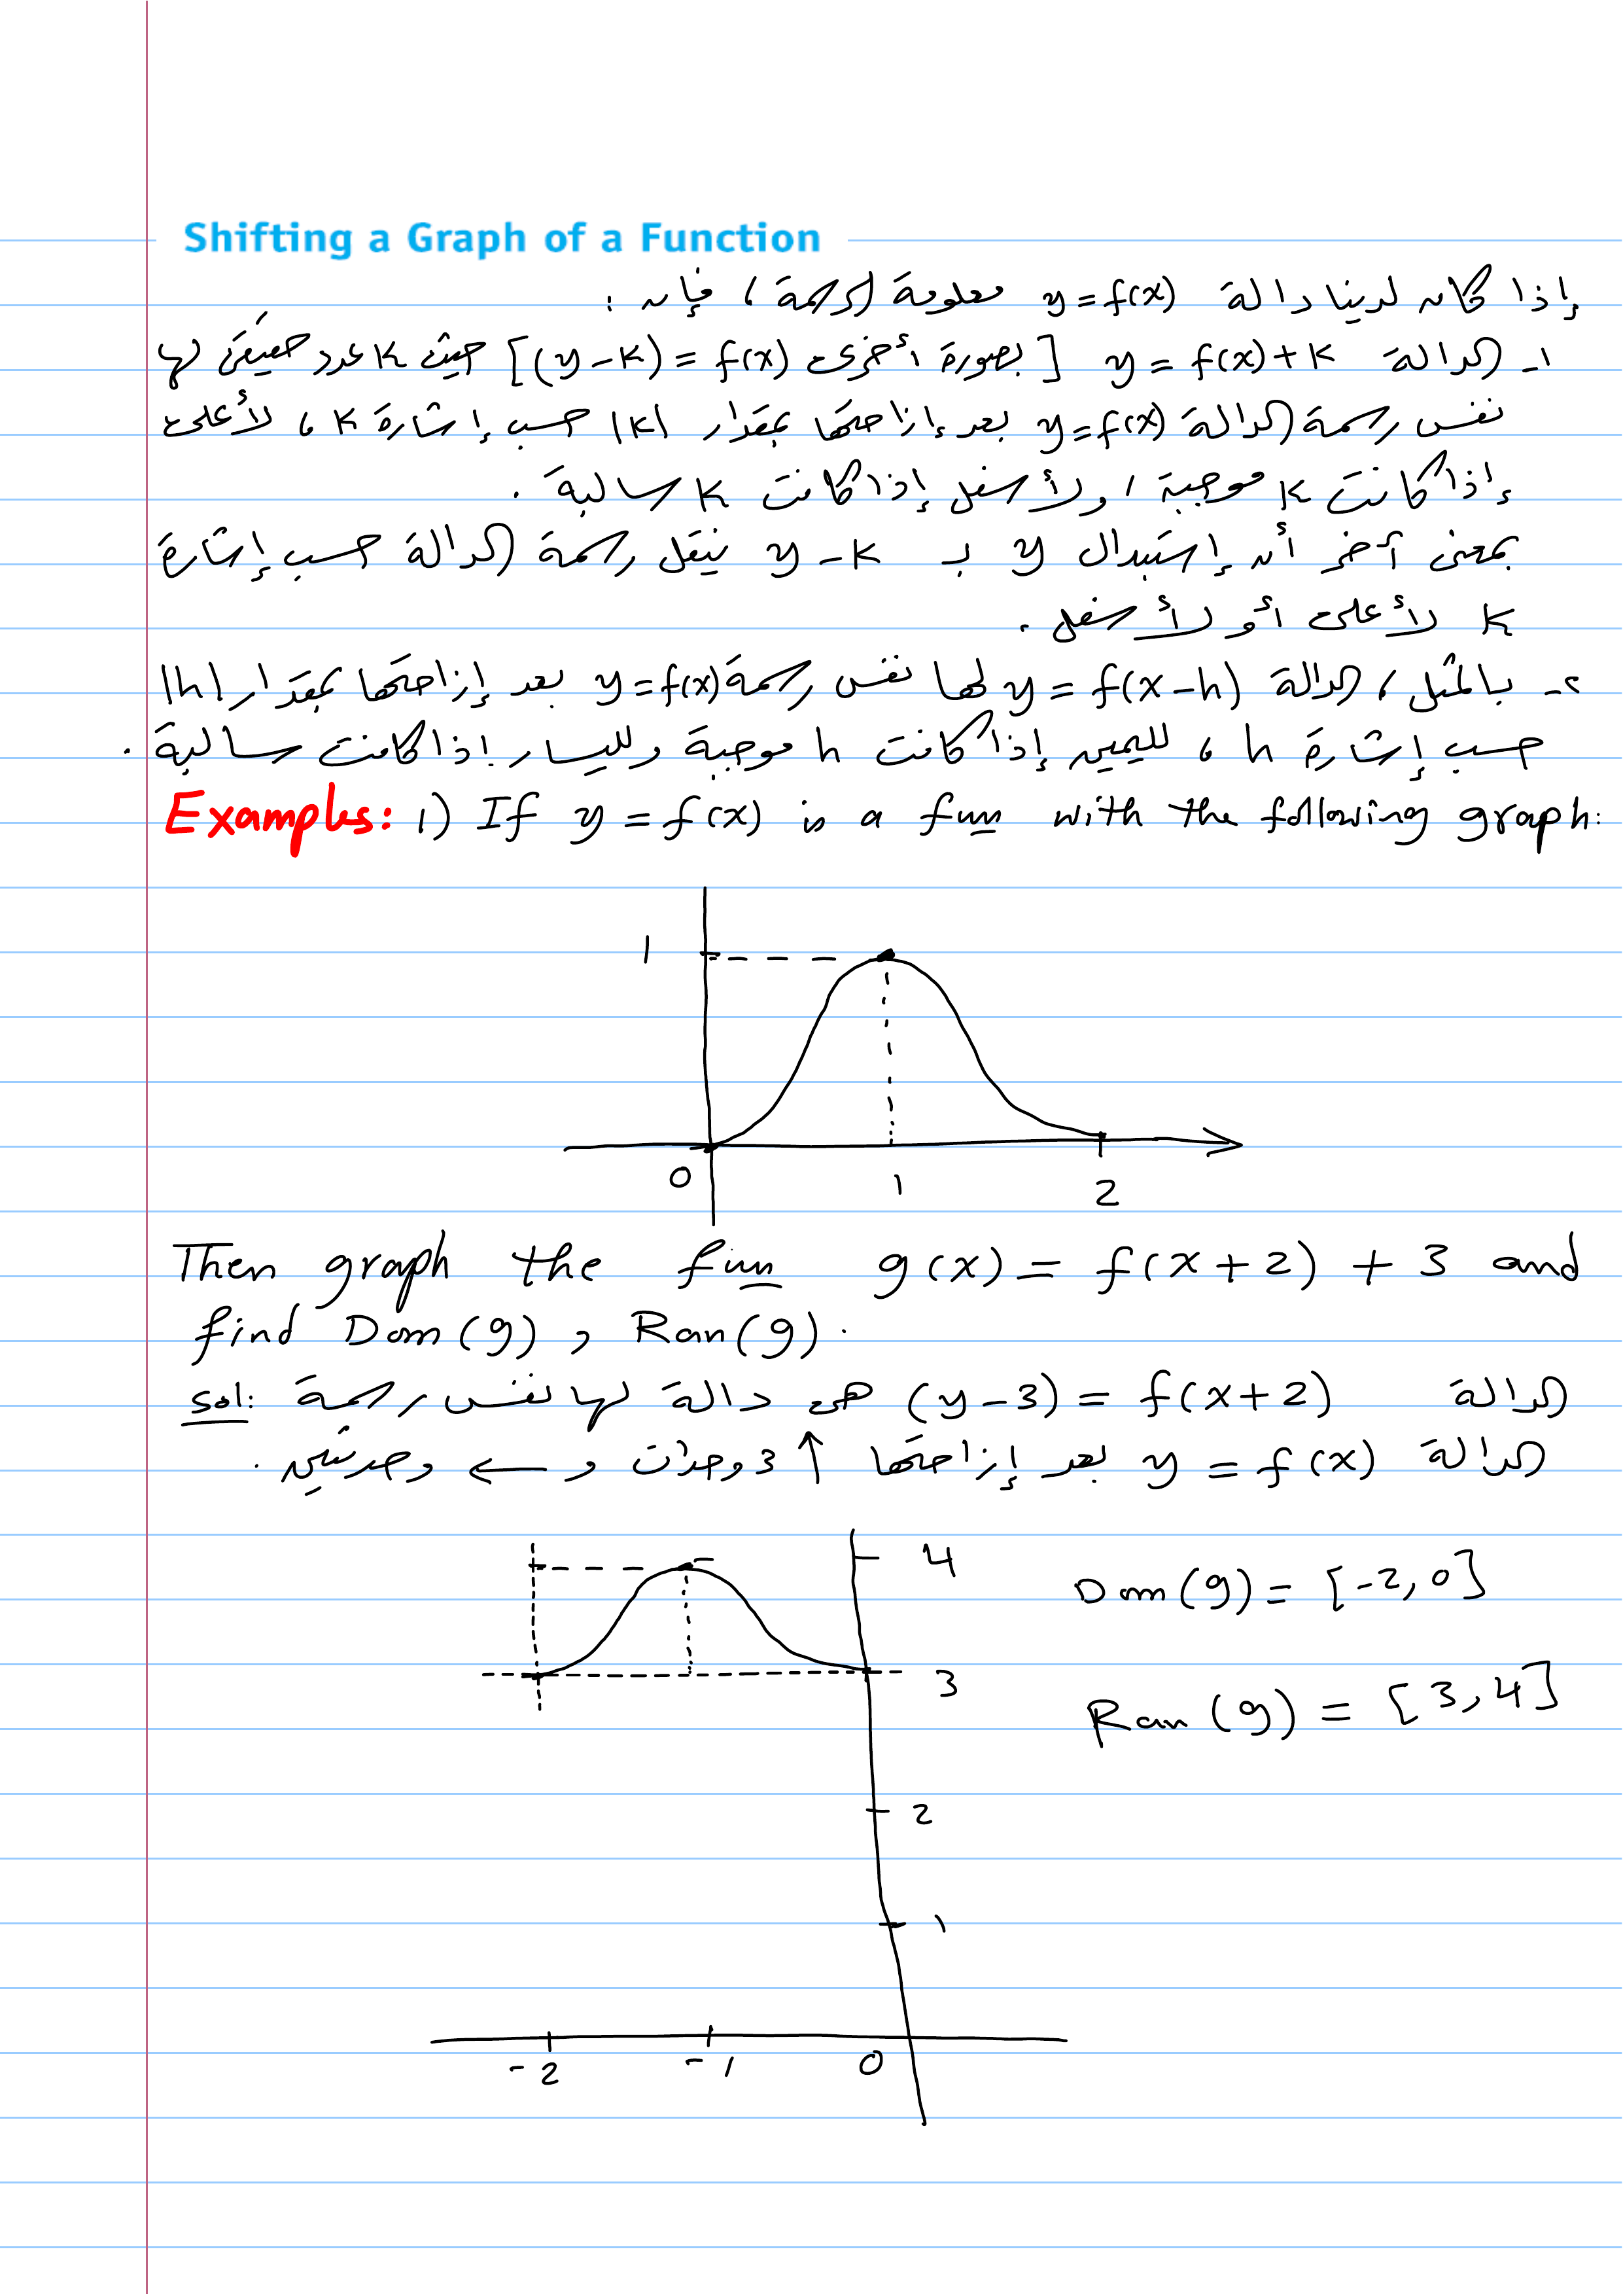 Shifting a Graph of a Function
إذا كان لدينا دالة y = f(x) معلومة الرسمة ، فإن :
١- الدالة y = f(x) + k [بصورة أخرى (y - k) = f(x)] حيث k عدد حقيقي لها
نفس رسمة الدالة y = f(x) بعد إزاحتها بمقدار |k| حسب إشارة k ، لأعلى
إذا كانت k موجبة ، ولأسفل إذا كانت k سالبة .
بمعنى آخر أن إستبدال y بـ y - k ينقل رسمة الدالة حسب إشارة
k لأعلى أو لأسفل .
٢- بالمثل ، الدالة y = f(x - h) لها نفس رسمة y = f(x) بعد إزاحتها بمقدار |h|
حسب إشارة h ، لليمين إذا كانت h موجبة ولليسار إذا كانت سالبة .
Examples: 1) If y = f(x) is a fun with the following graph:
1
0 1 2
Then graph the fun g(x) = f(x+2) + 3 and
find Dom(g) , Ran(g).
sol: الدالة (y-3) = f(x+2) هي دالة لها نفس رسمة
الدالة y = f(x) بعد إزاحتها ↑ 3 وحدات و ← وحدتين .
4
Dom(g) = [-2, 0]
3
Ran(g) = [3, 4]
2
1
-2 -1 0